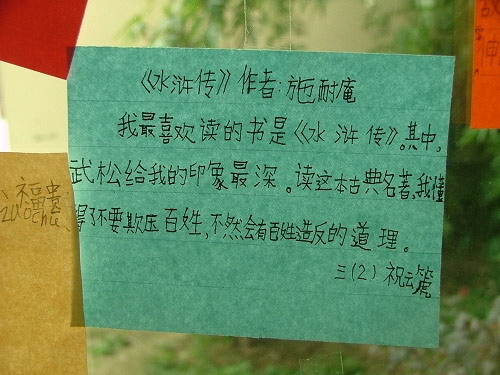 《水浒传》作者:施耐庵
我最喜欢读的书是《水浒传》。其中,
武松给我的印象最深。读这本古典名著,我懂
得了不要欺压百姓,不然会有百姓造反的道理。
三(2) 祝云篪
福